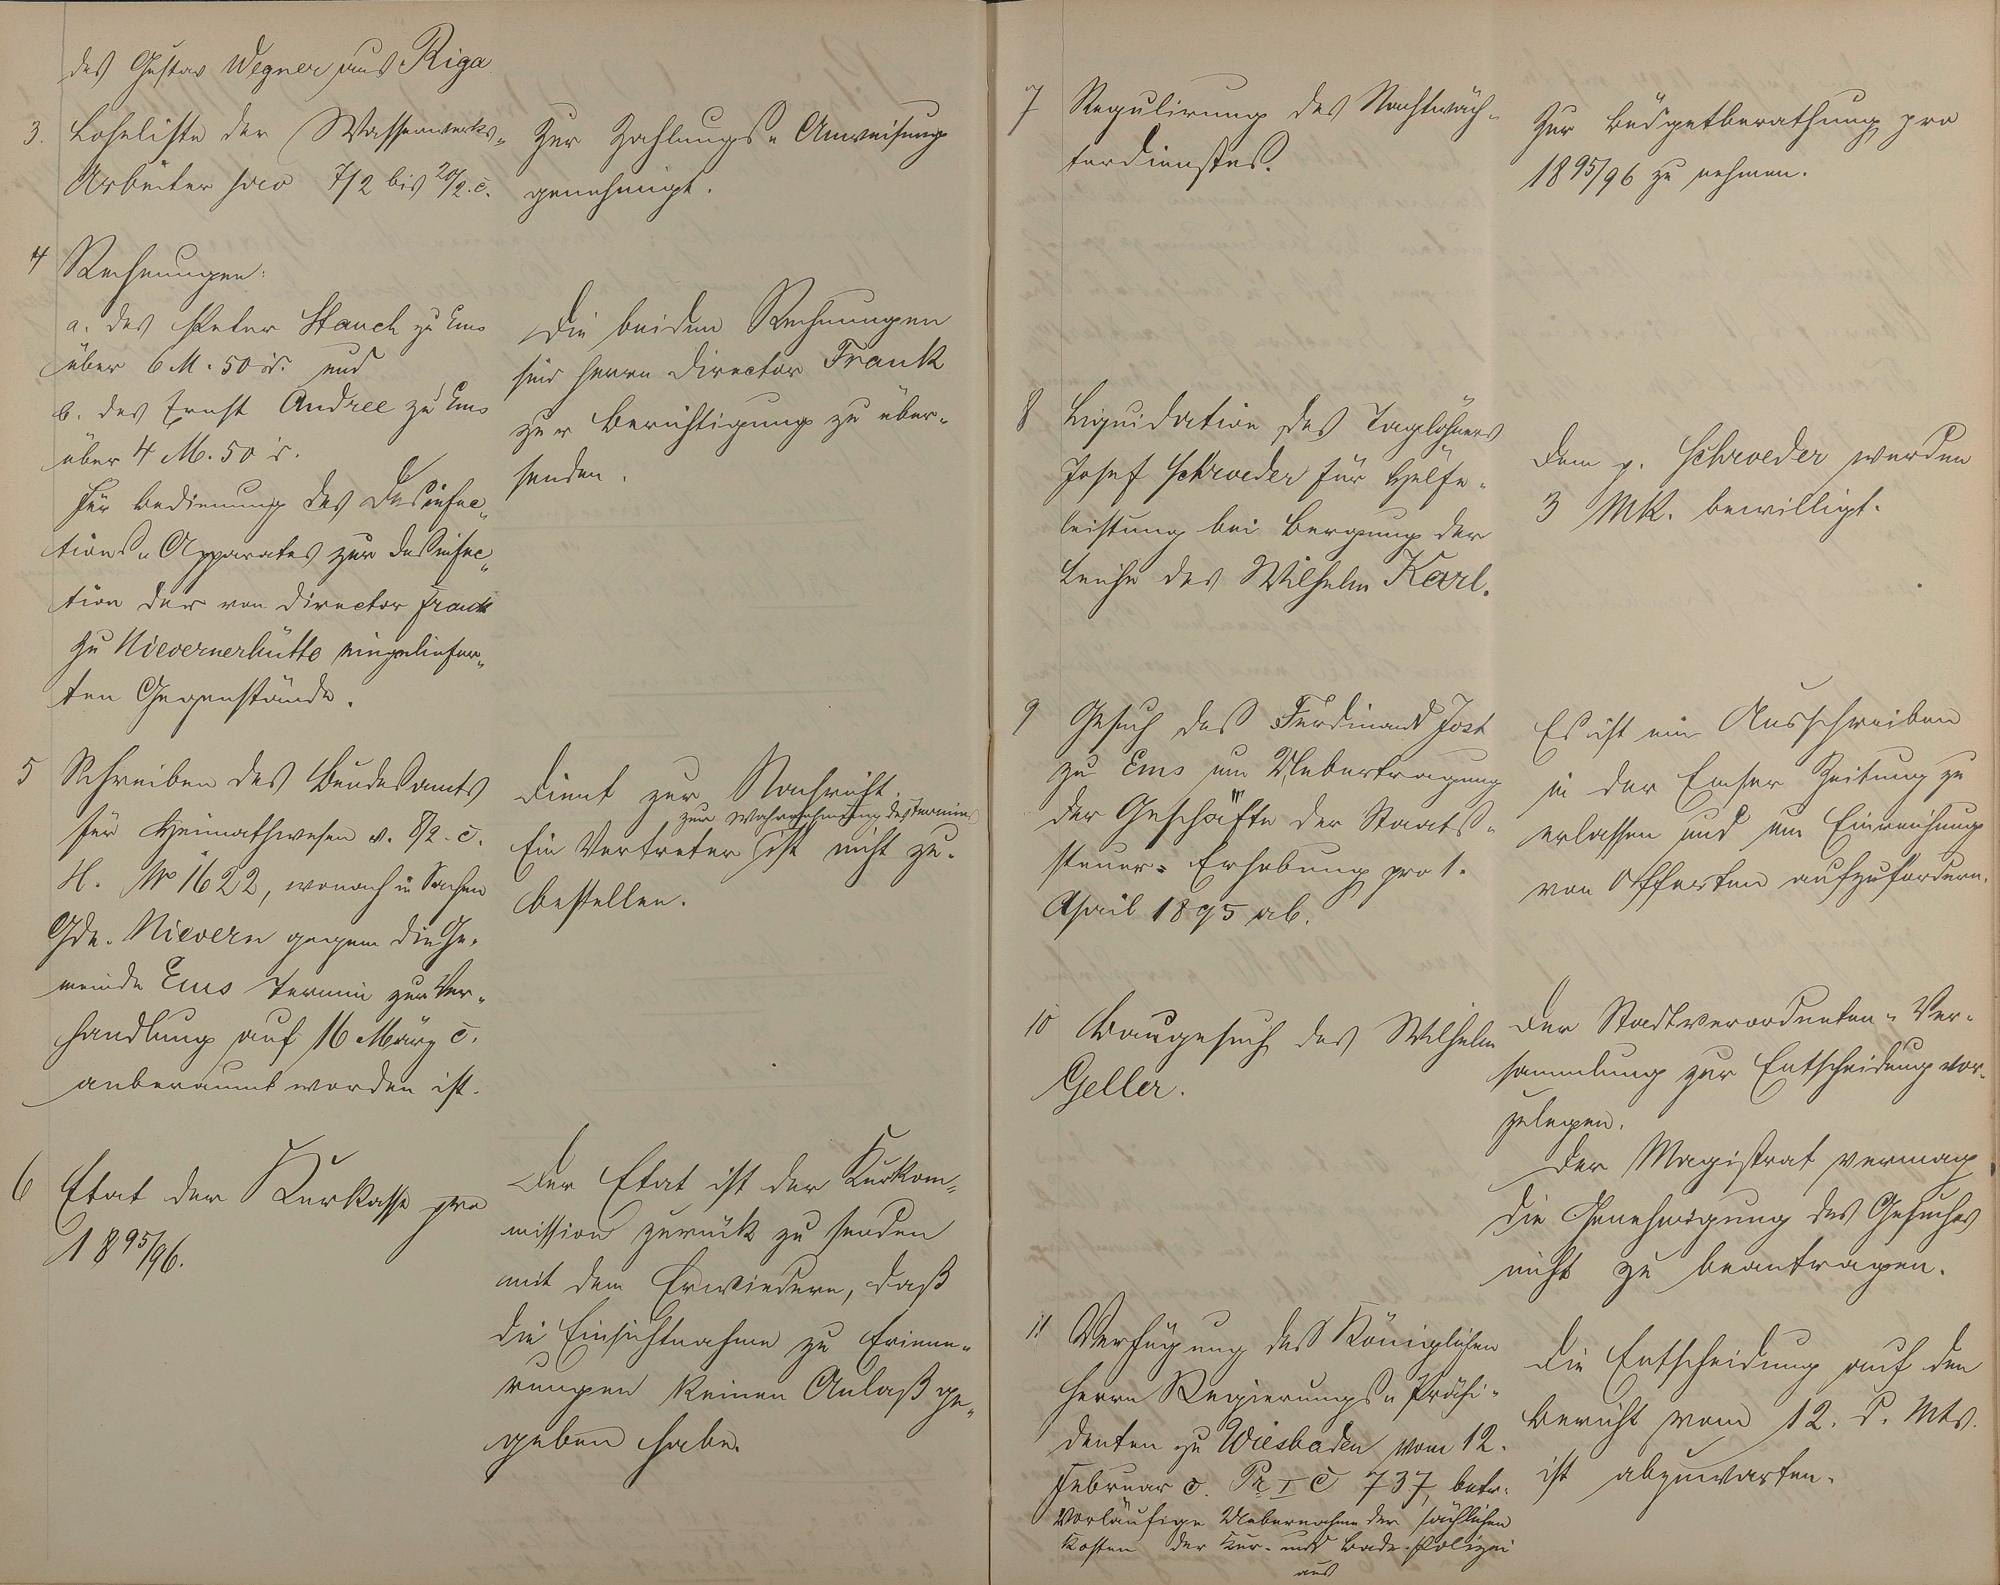 des Gustav Wegner aus Riga.
3. Lohnliste der Wasserwerks-
Arbeiter pro 7/2 bis 20/2. c.
Zur Zahlungs-Anweisung
genehmigt.
4 Rechnungen:
a. des Peter Stauch zu Ems
über 6 M. 50 d. und
b. des Ernst Andree zu Ems
über 4 M. 50 d.
für Bedienung des Desinfec-
tions-Apparates zur Desinfec-
tion der von Director Frank
zu Nievernerhütte eingeliefer-
ten Gegenstände.
Die beiden Rechnungen
sind Herrn Director Frank
zur Berichtigung zu über-
senden.
5 Schreiben des Bundesamts
für Heimathwesen v. 8/2. c.
H. No 1622, wonach in Sachen
Gde. Nievern gegen die Ge-
meinde Ems Termin zur Ver-
handlung auf 16 März c.
anberaumt worden ist.
Dient zur Nachricht.
zur Wahrnehmung des Termins
Ein Vertreter ist nicht zu
bestellen.
6 Etat der Kurkasse pro
1895/96.
Der Etat ist der Kurkom-
mission zurück zu senden
mit dem Erwiedern, daß
die Einsichtnahme zu Erinne-
rungen keinen Anlaß ge-
geben habe.
7 Regulirung des Nachtwäch-
terdienstes.
Zur Büdgetberathung pro
1895/96 zu nehmen.
8 Liquidation des Taglöhners
Josef Schroeder für Hülfe-
leistung bei Bergung der
Leiche des Wilhelm Karl.
Dem p. Schroeder werden
3 Mk. bewilligt.
9 Gesuch des Ferdinand Jost
zu Ems um Uebertragung
der Geschäfte der Staats-
steuer-Erhebung pro 1.
April 1895 ab.
Es ist ein Ausschreiben
in der Emser Zeitung zu
erlassen und um Einreichung
von Offerten aufzufordern.
10 Baugesuch des Wilhelm
Geller.
Der Stadtverordneten-Ver-
sammlung zur Entscheidung vor-
zulegen.
Der Magistrat vermag
die Genehmigung des Gesuches
nicht zu beantragen.
11 Verfügung des Königlichen
Herrn Regierungs-Präsi-
denten zu Wiesbaden vom 12.
Februar c. Pr I C 737, betr.
vorläufige Uebernahme der sächlichen
Kosten der Kur- und Bade-Polizei
aus
Die Entscheidung auf den
Bericht vom 12. d. Mts.
ist abzuwarten.